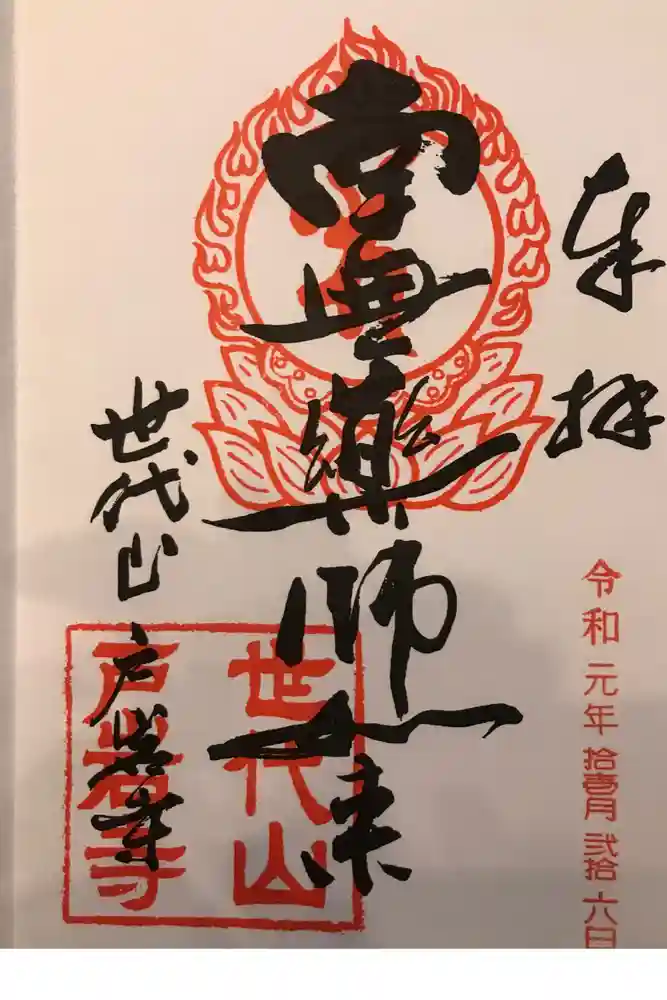 奉拝
令和元年拾壱月弐拾六日
南無薬師如来
世代山 戸岩寺
世代山
戸岩寺